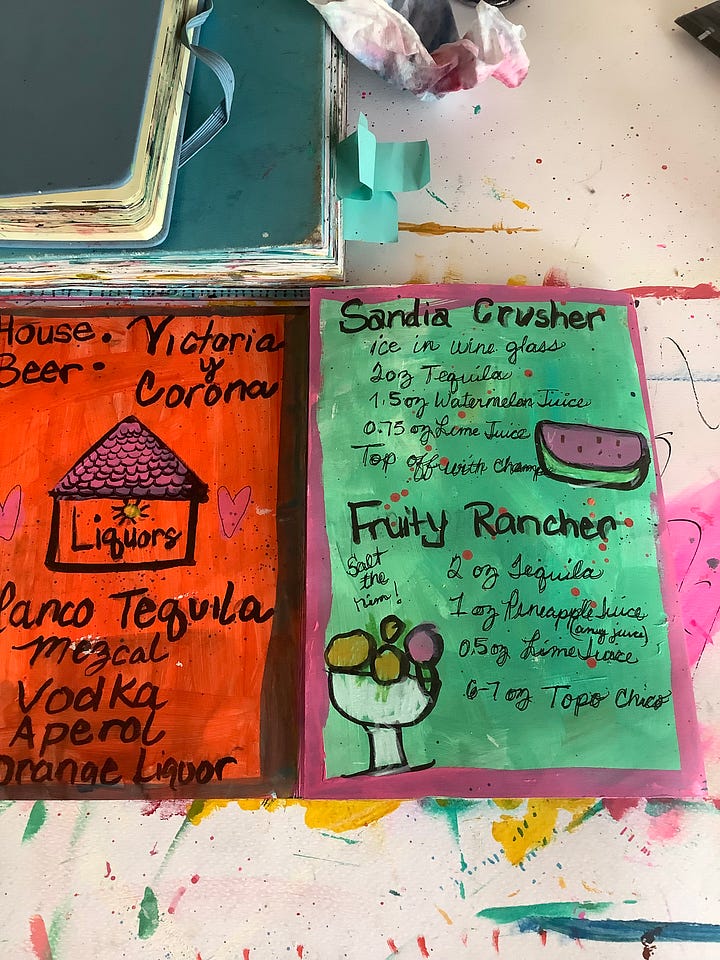 House.
Beer.
Victoria
y
Corona
Liquors
lanco Tequila
Mezcal
Vodka
Aperol
Orange Liquor
Sandia Crusher
ice in wine glass
2oz Tequila
1.5oz Watermelon Juice
0.75 oz Lime Juice
Top off with champ
Fruity Rancher
Salt
the
rim!
2 oz Tequila
1 oz Pineapple Juice
(any juice)
0.5 oz Lime Juice
6-7 oz Topo Chico